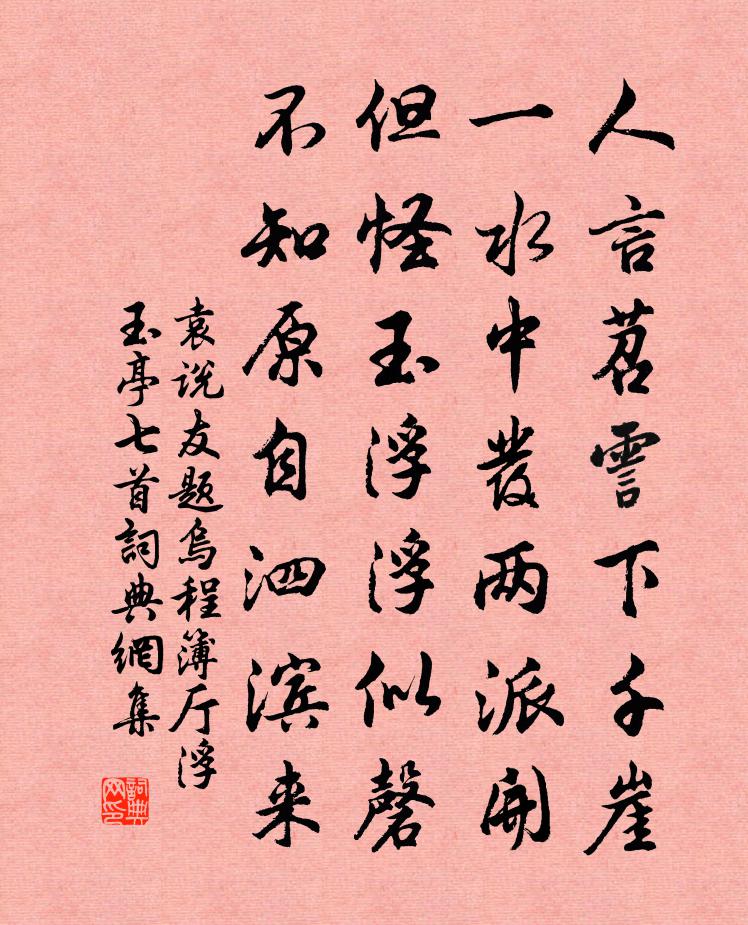 人言苕霅下千崖
一水中發两派開
但怪玉浮浮似磬
不知原自泗滨来
袁说友题烏程簿厅浮
玉亭七首詞典網集
詞典网印